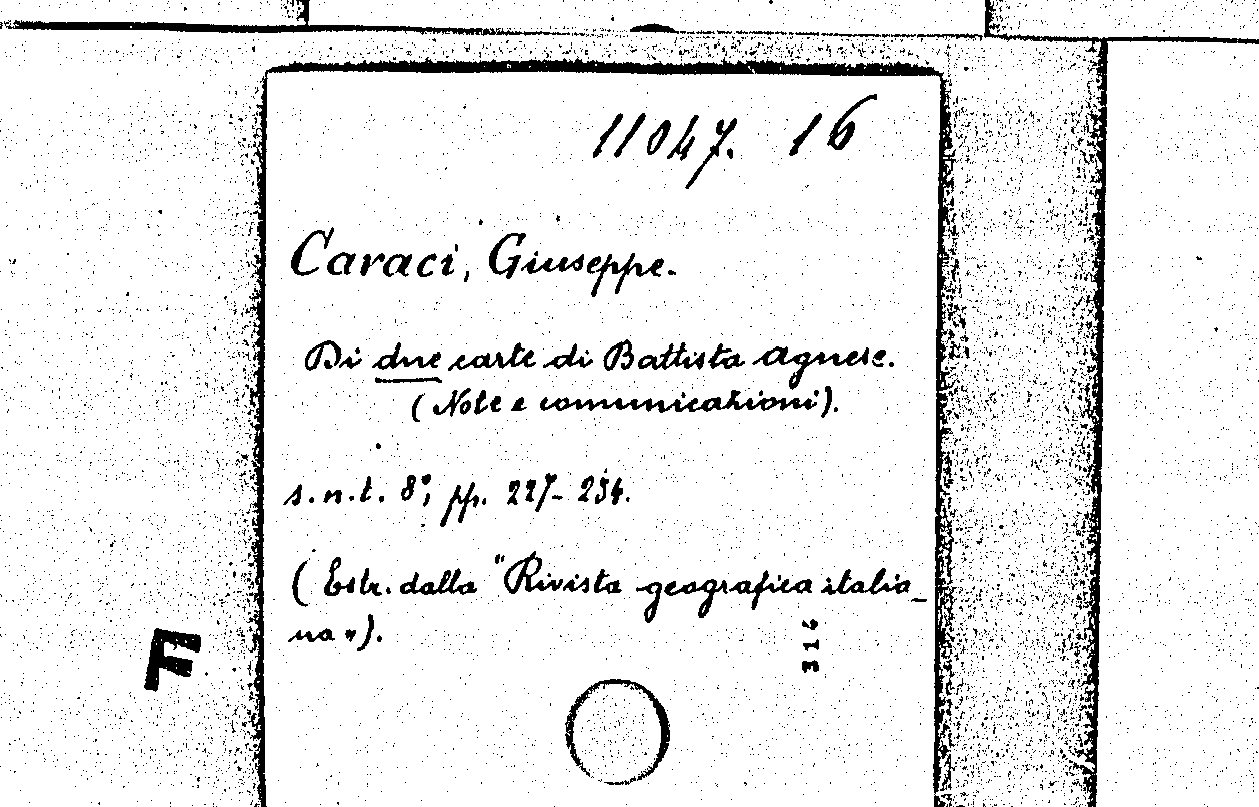 11047. 16
Caraci, Giuseppe.
Di due carte di Battista Agnese.
(Note e comunicazioni).
s.n.t. 8°, pp. 227-234.
(Estr. dalla "Rivista geografica italia_
na").
F
314